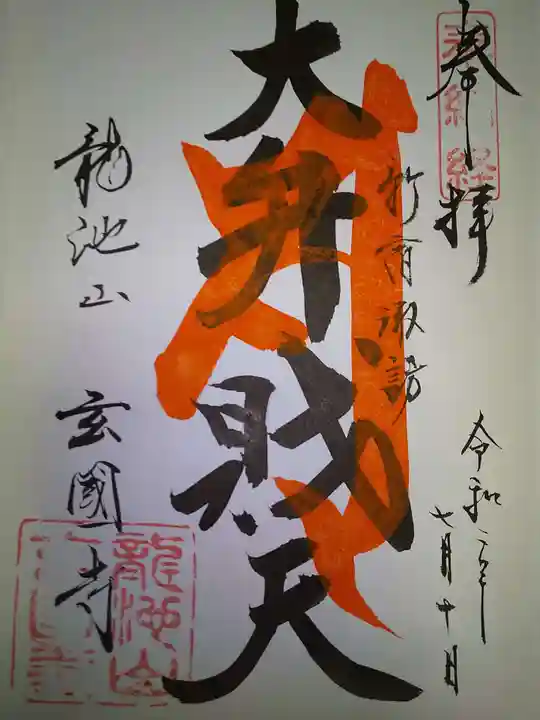 奉拝
奉納経
令和二年
七月十日
新宿諏訪
大弁財天
龍池山 玄國寺
龍池山